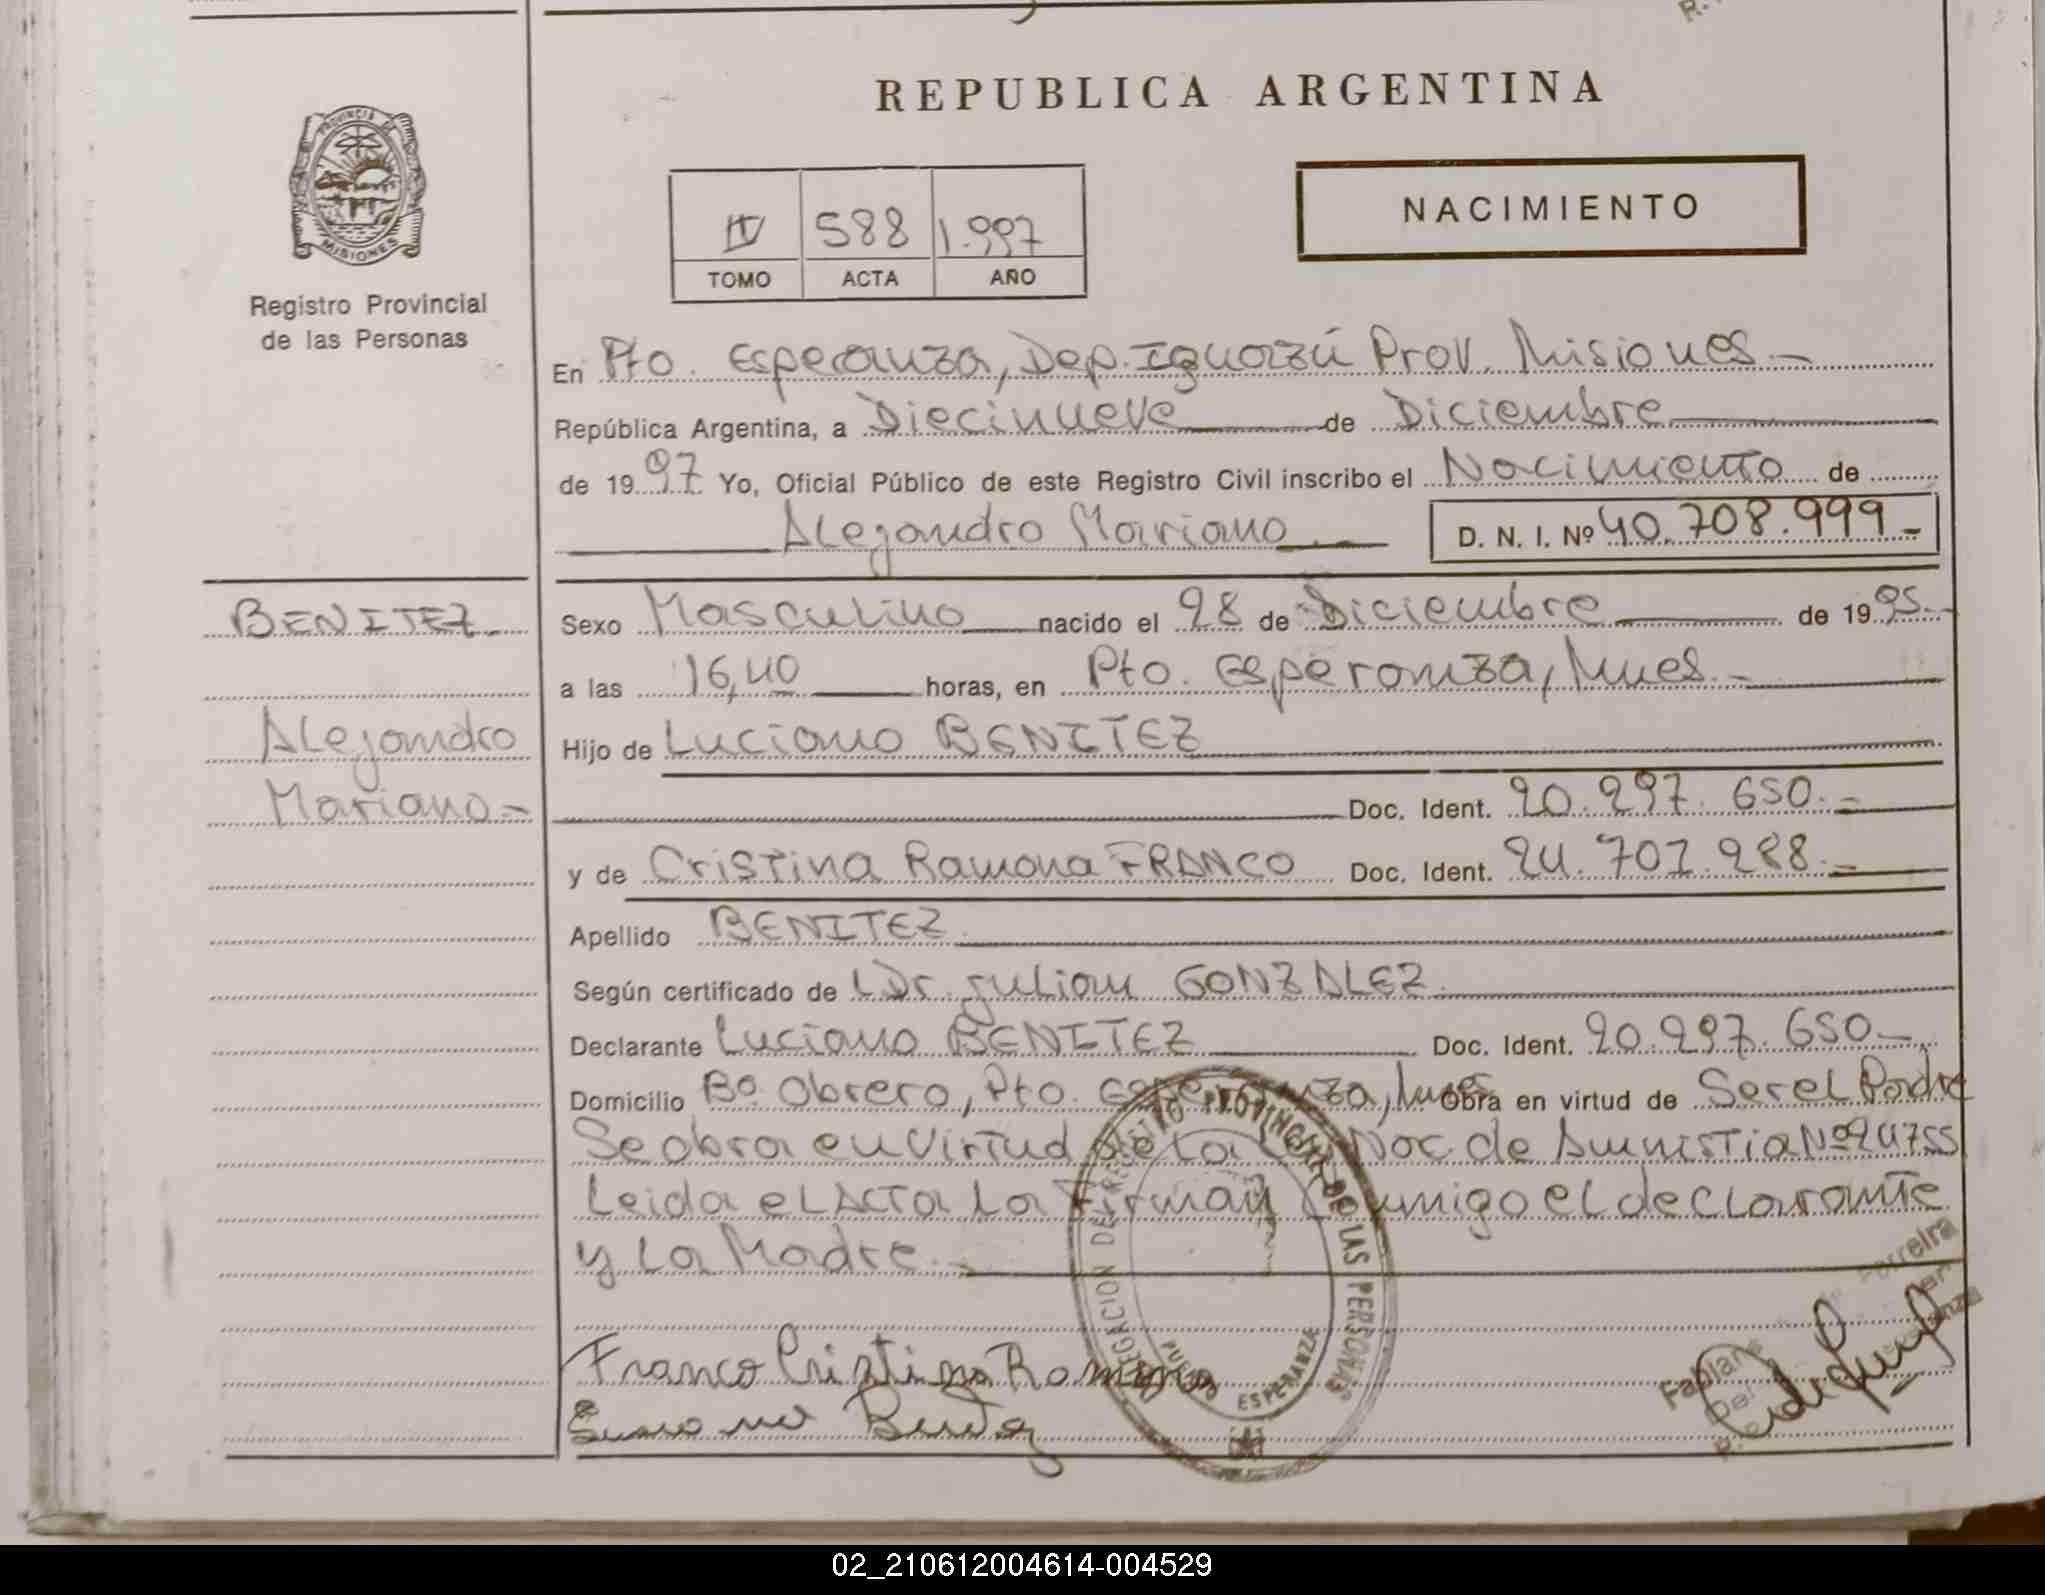 REPUBLICA ARGENTINA
PROVINCIA DE
MISIONES
Registro Provincial
de las Personas
IV 588 1.997
TOMO ACTA AÑO
NACIMIENTO
En Pto. Esperanza, Dep. Iguazú Prov. Misiones.-
República Argentina, a Diecinueve de Diciembre
de 1997 Yo, Oficial Público de este Registro Civil inscribo el Nacimiento de
Alejandro Mariano D. N. I. Nº 40.708.999-
BENITEZ
Alejandro
Mariano-
Sexo Masculino nacido el 28 de Diciembre de 1995-
a las 16,40 horas, en Pto. Esperanza, Mnes.-
Hijo de Luciano BENITEZ
Doc. Ident. 20.297.650.-
y de Cristina Ramona FRANCO Doc. Ident. 24.701.288.-
Apellido BENITEZ.
Según certificado de Dr. Julian GONZALEZ.
Declarante Luciano BENITEZ Doc. Ident. 20.297.650-
Domicilio Bº Obrero, Pto. Esperanza, Mnes Obra en virtud de Ser el Padre
Se obra en Virtud de la Nac. de Amnistia Nº 24755
Leida el Acta La Firman Conmigo el declarante
y La Madre.-
Franco Cristina Ramona
DELEGACION DEL REGISTRO PROVINCIAL DE LAS PERSONAS
PUERTO ESPERANZA
Ferreira
02_210612004614-004529